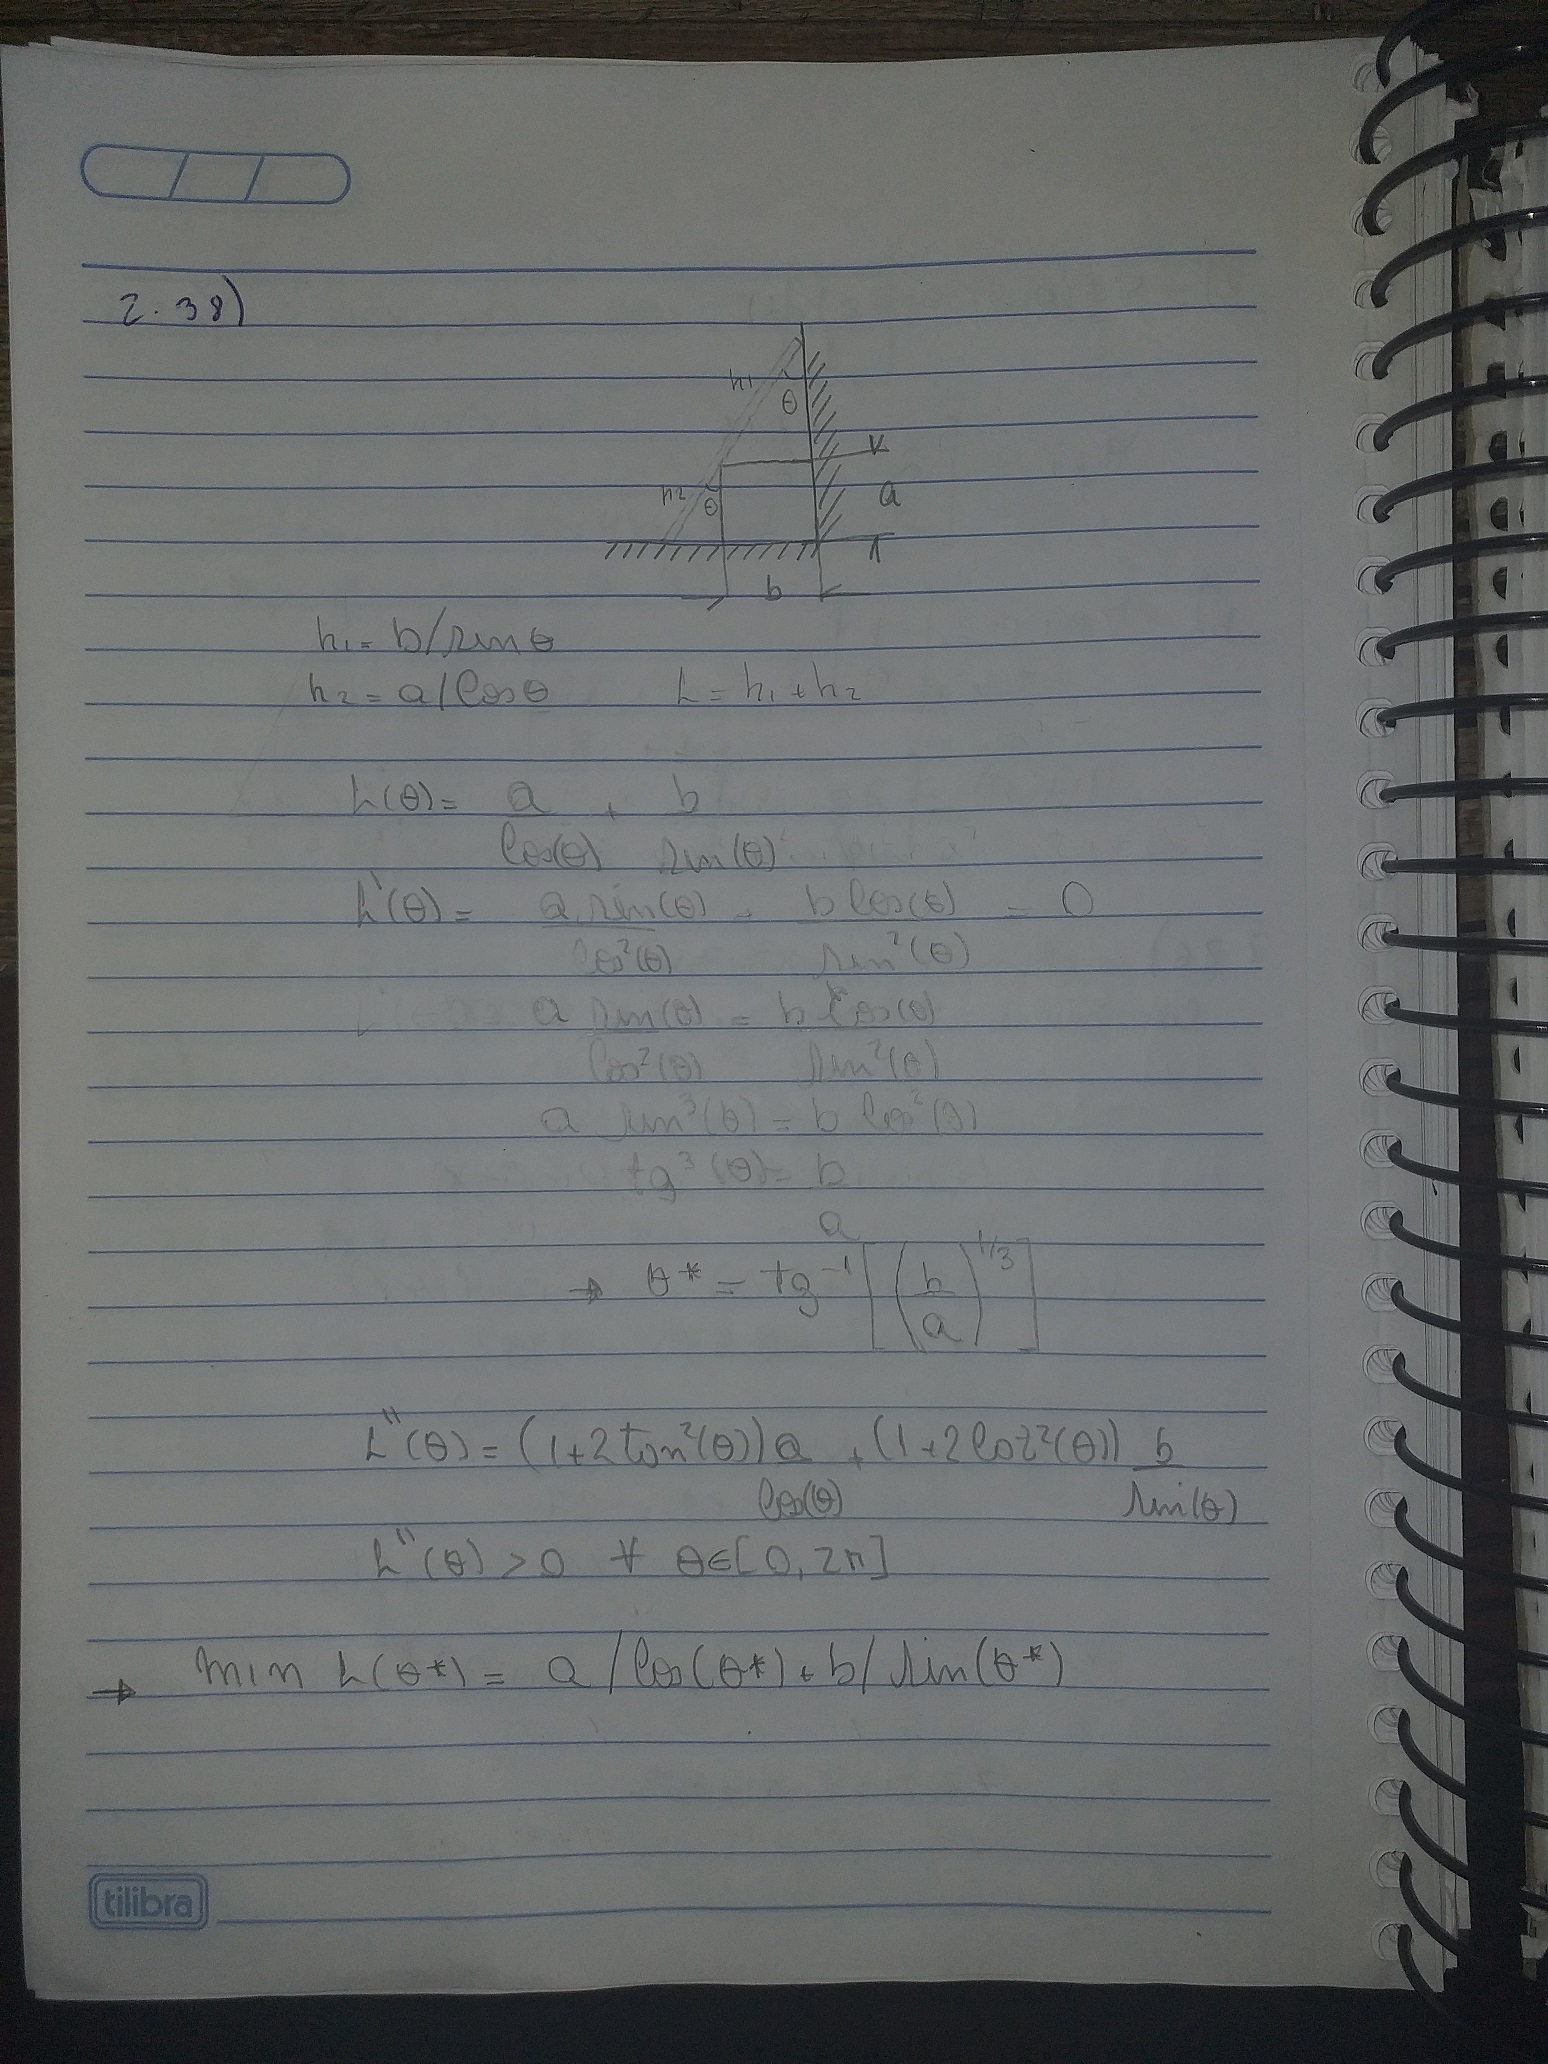 2.38)
h1
θ
h2
θ
a
b
h1 = b/sinθ
h2 = a/cosθ L = h1 + h2
L(θ) = a + b
cos(θ) sin(θ)
L'(θ) = a sin(θ) - b cos(θ) = 0
cos²(θ) sin²(θ)
a sin(θ) = b cos(θ)
cos²(θ) sin²(θ)
a sin³(θ) = b cos³(θ)
tg³(θ) = b
a
→ θ* = tg⁻¹[(b/a)^1/3]
L''(θ) = (1+2tan²(θ)) a + (1+2cot²(θ)) b
cos(θ) sin(θ)
L''(θ) > 0 ∀ θ∈[0, 2π]
→ min L(θ*) = a/cos(θ*) + b/sin(θ*)
tilibra